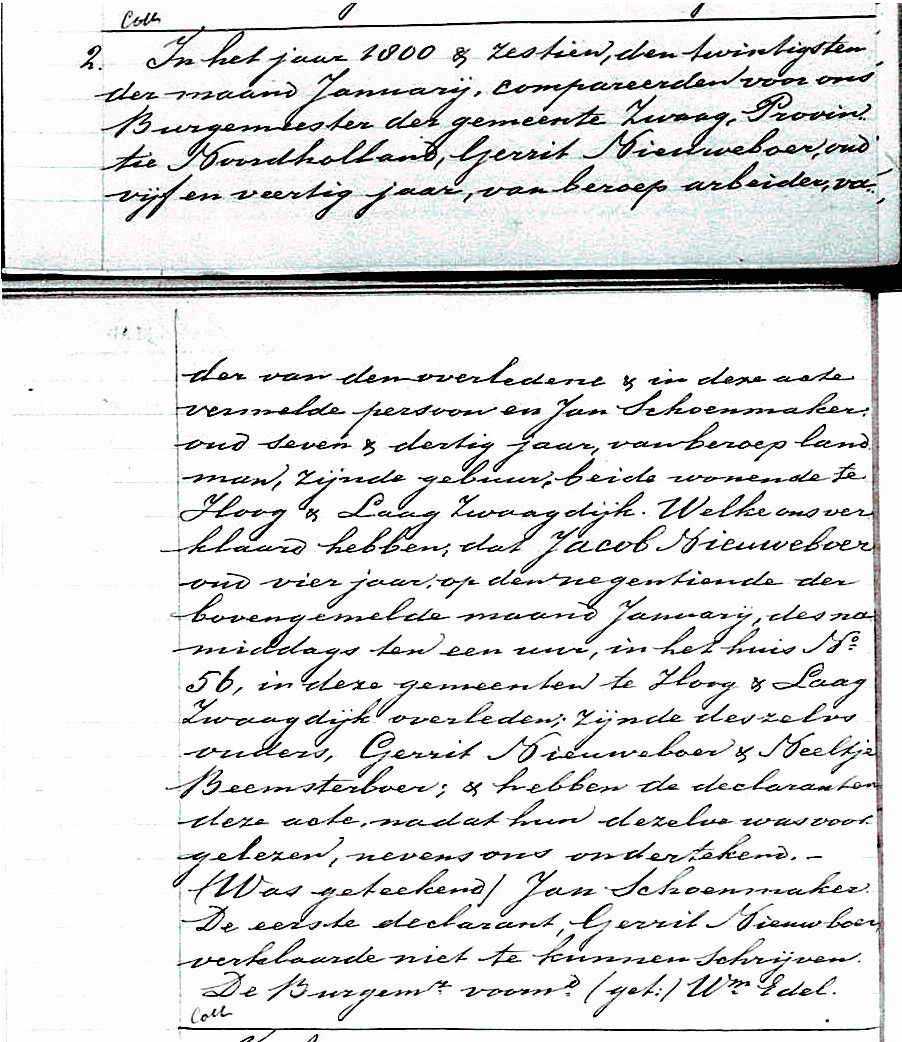 Coll
2. In het jaar 1800 & zestien, den twintigsten
der maand Januarij, compareerden voor ons
Burgemeester der gemeente Zwaag, Provin-
tie Noordholland, Gerrit Nieuweboer, oud
vijf en veertig jaar, van beroep arbeider, va-
der van den overledene & in deze acte
vermelde persoon en Jan Schoenmaker,
oud seven & dertig jaar, van beroep land
man, zijnde gebuur, beide wonende te
Hoog & Laag Zwaagdijk. Welke ons ver
klaard hebben, dat Jacob Nieuweboer
oud vier jaar, op den negentiende der
bovengemelde maand Januarij, des na
middags ten een uur, in het huis No.
56, in deze gemeenten te Hoog & Laag
Zwaagdijk overleden; zijnde deszelvs
ouders, Gerrit Nieuweboer & Neeltje
Beemsterboer; & hebben de declaranten
deze acte, nadat hun dezelve was voor
gelezen, nevens ons ondertekend. –
(Was geteekend) Jan Schoenmaker.
De eerste declarant, Gerrit Nieuwboer,
verklaarde niet te kunnen schrijven.
De Burgemr. voornd. (get:) Wm. Edel.
Coll